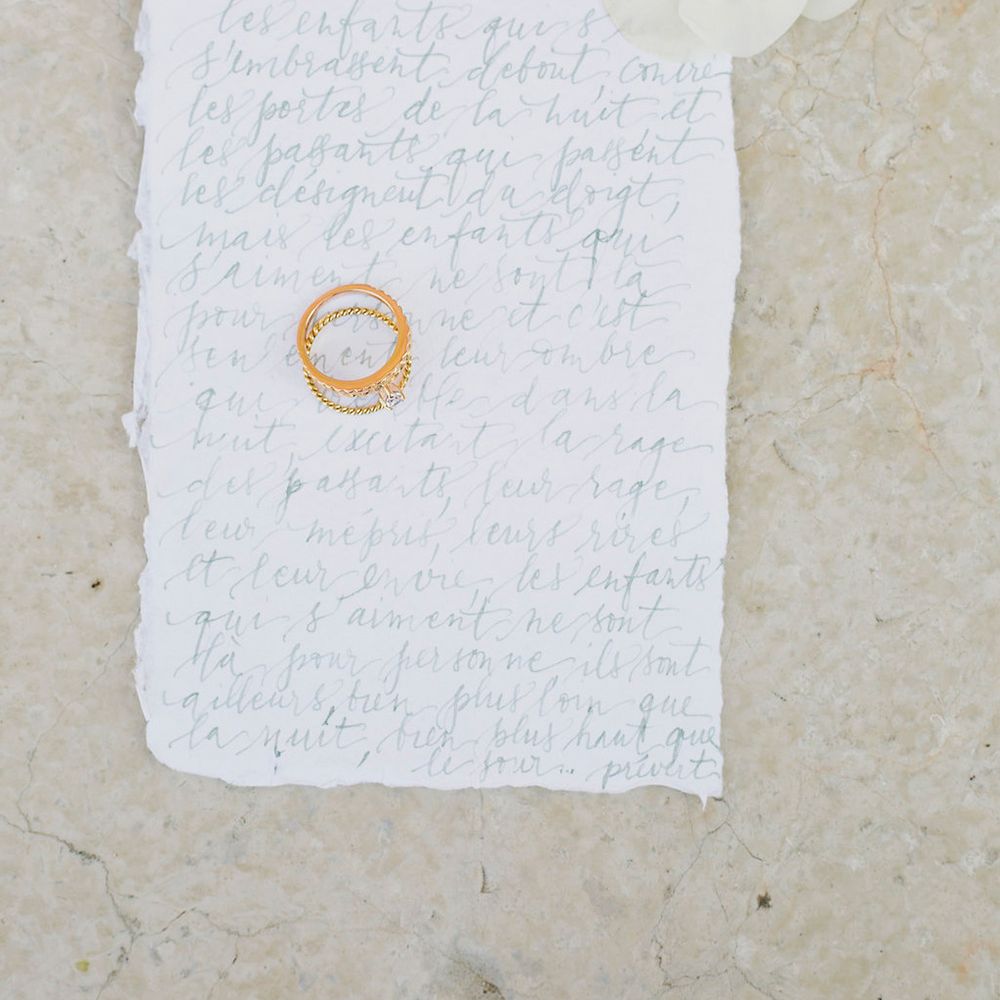 les enfants qui s
s'embrassent debout, contre
les portes de la nuit et
les passants qui passent
les désignent du doigt,
mais les enfants qui
s'aiment ne sont là
pour personne et c'est
seulement leur ombre
qui tremble dans la
nuit, excitant la rage
des passants, leur rage,
leur mépris, leurs rires
et leur envie, les enfants
qui s'aiment ne sont
là pour personne ils sont
ailleurs bien plus loin que
la nuit, bien plus haut que
le jour... prévert